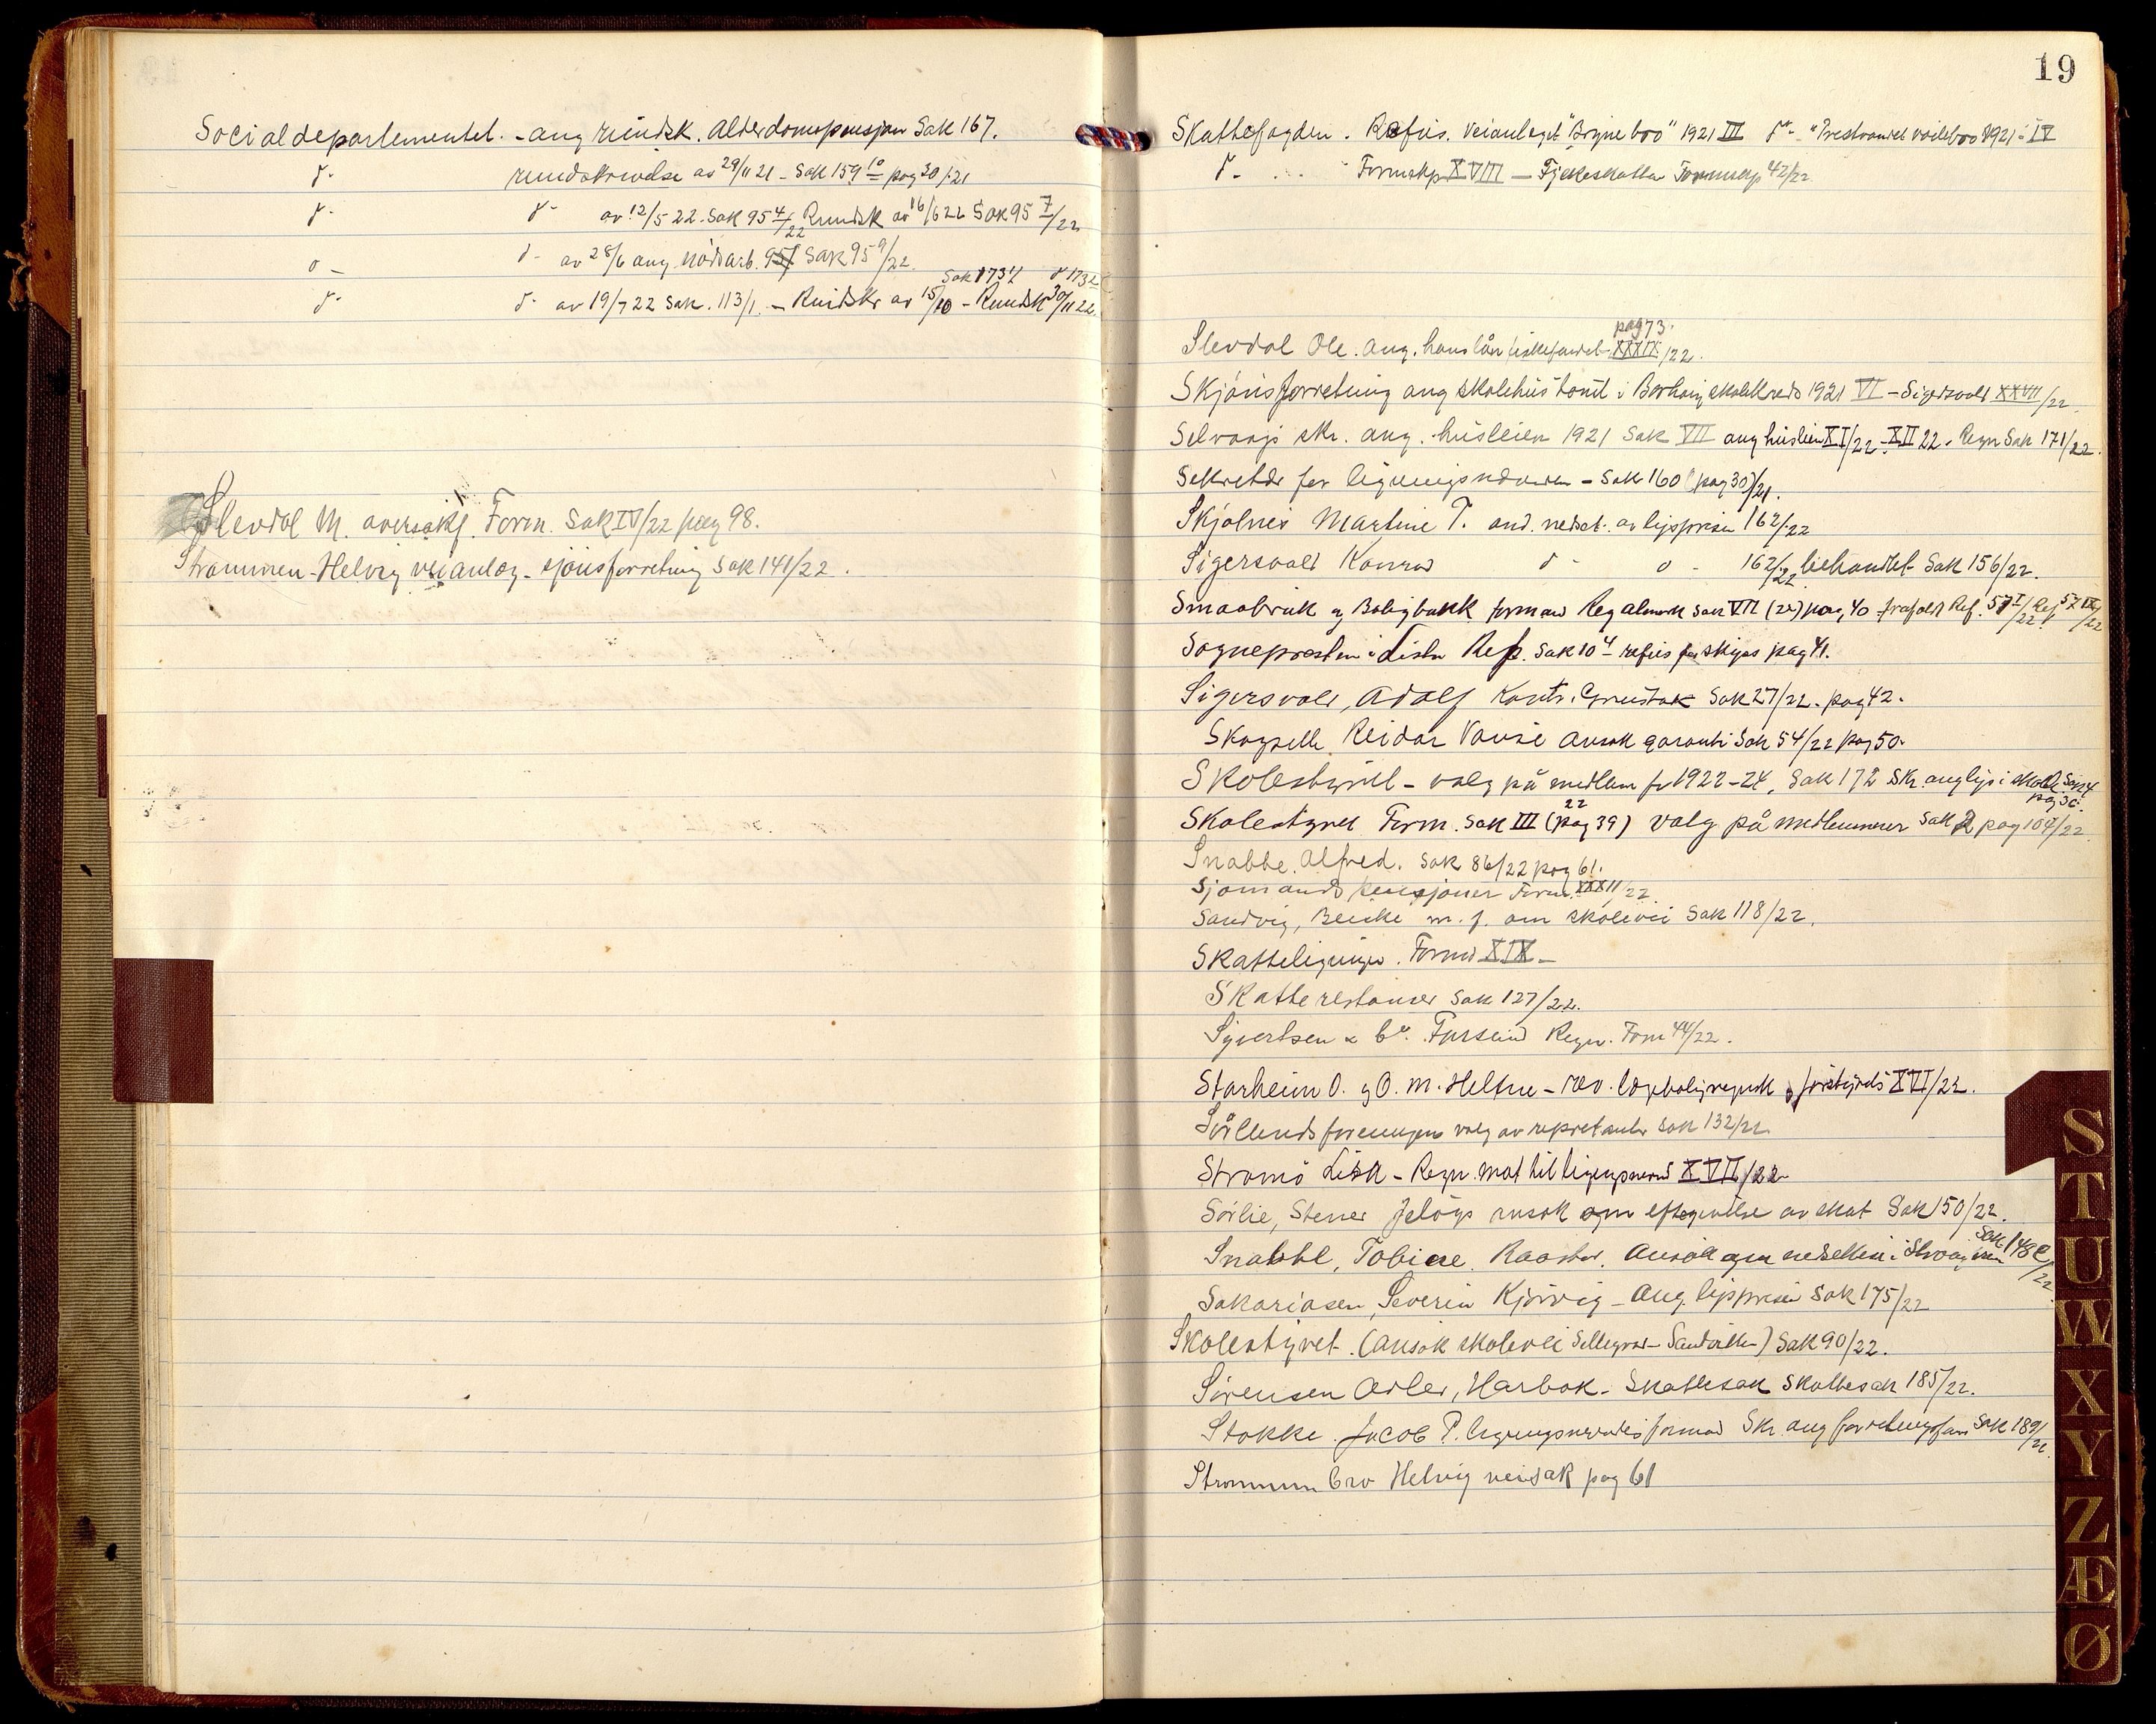 Socialdepartementet. - ang rundsk. Alderdomspensjon Sak 167.
d- rundskrivelse av 29/11 21 - Sak 159 10 pag 30/21
d- d- av 12/5 22. Sak 95 4/22 Rundsk av 16/6 22 Sak 95 7/22
d- d- av 28/6 ang nödsarb. Sak 95 9/22
Sak 173 d 173
d- d- av 19/7 22 Sak. 113/1. - Rundskr av 15/10 - Rundsk 30/11 22.
Slevdal M. Form. Sak IV/22 pag 98.
Strommen-Helvig veianlæg - sjönsforretning Sak 141/22.
19
Skattefogden. Refus. Veianlæget "Bryne bro" 1921 III d- 1921 - IV
d- Formskp XVIII - Formskp 42/22
pag 73.
Slevdal Ole. ang. hans lån XXXIX/22.
Skjönsforretning ang skolehustomt i Borhaug skolekreds 1921 VI - Sigersvold XXVII/22
Selvaags skr. ang. husleien 1921 Sak VII ang husleien XI/22 - XII 22. Regn Sak 171/22
Sekretær for ligningsnævnden - Sak 160 (pag 30)/21.
Skjolnes Martine T. and. nedset. av lysprisen 162/22
Sigersvold Konrad d- d- 162/22 behandlet Sak 156/22.
Smaabruk og Boligbank Sak VII (22) pag 40 Ref. 57 I/22. Ref 57 IX/22
Sognepresten i Lista Ref. Sak 10 4 - refus pag 41.
Sigersvold, Adolf Kontr. Grustak Sak 27/22. pag 42.
Skogselle Reidar Vanse ansök garanti Sak 54/22 pag 50.
Skolestyret - valg på medlem for 1922-24, Sak 172 Skr. ang lys i skole Sak 4
pag 36.
Skolestyret Form. Sak III (pag 39) 22 valg på medlemmer Sak 2 pag 104/22
Snabbe. Alfred. Sak 86/22 pag 61.
Sjomands pensjoner Form. XXXII/22.
Sandvig, m. fl. om skolevei Sak 118/22.
Skatteligningen. Formd XIX -
Skatterestanser Sak 127/22.
Syvertsen & Co. Farsund Regn. Form 44/22.
Starheim O. og O. M. Heltne - rev. XVI/22.
Sörlandsforeningens valg av Sak 132/22
Stromö Lista - Regn. mat til ligningsnevnd XVII/22
Sörlie, Stener Jelöys ansök om eftergivelse av skat Sak 150/22.
Snabbe, Tobine. Ansök om nedsettelse i Sak 148 e/22
Sakariasen, Severin Kjörvig - Ang. lysprisen Sak 175/22
Skolestyret. (Ansök skolevei Sellegrod - ) Sak 90/22.
Sörensen Adler, Harbak - Skattesak Skattesak 185/22.
Stokke. Jacob P. ligningsnevndes formand Skr. ang Sak 189/22
Strommen bro Helvig veisak pag 61
S
T
U
W
X
Y
Z
Æ
Ø